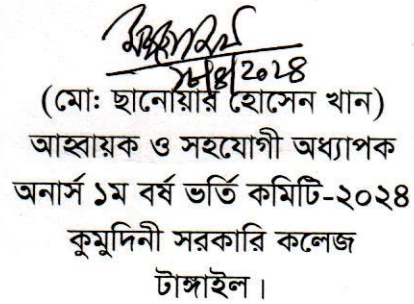 (মো: ছানোয়ার হোসেন খান)
আহ্বায়ক ও সহযোগী অধ্যাপক
অনার্স ১ম বর্ষ ভর্তি কমিটি-২০২৪
কুমুদিনী সরকারি কলেজ
টাঙ্গাইল।